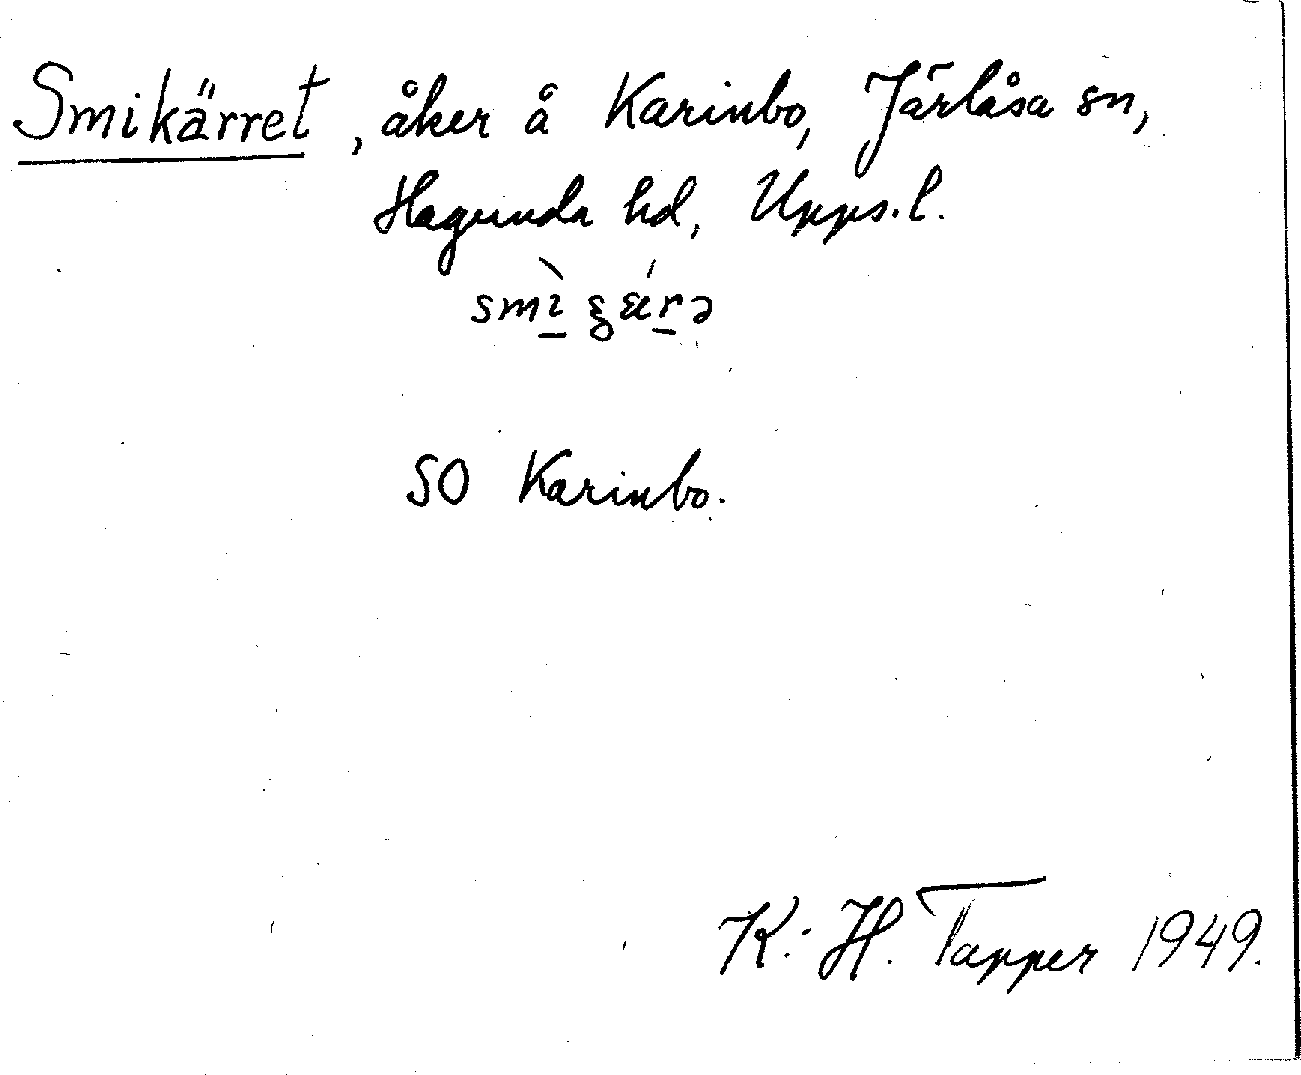 Smikärret, åker å Karinbo, Järlåsa sn,
Hagunda hd, Upps. l.
SO Karinbo.
K.-H. Tapper 1949.